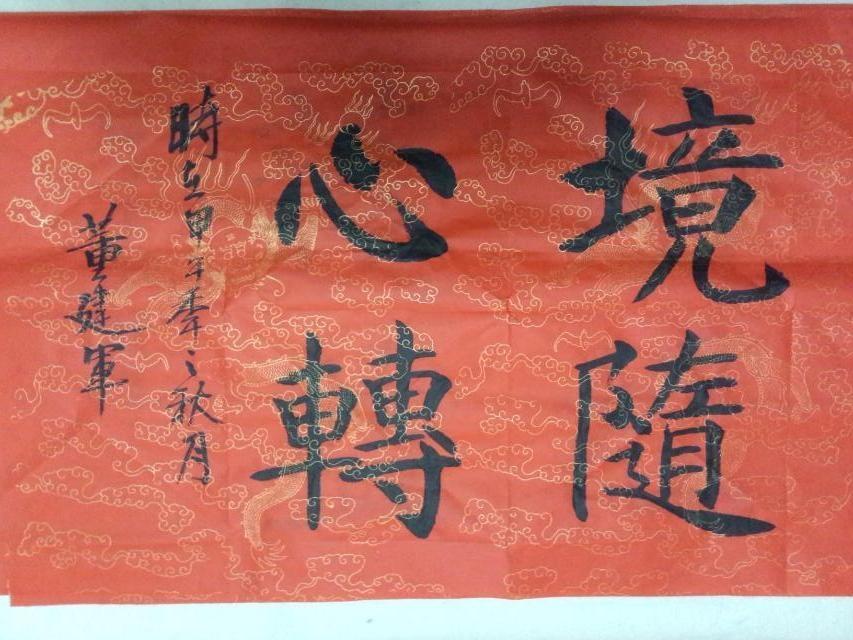 境隨
心轉
時在甲午年之秋月
董建軍